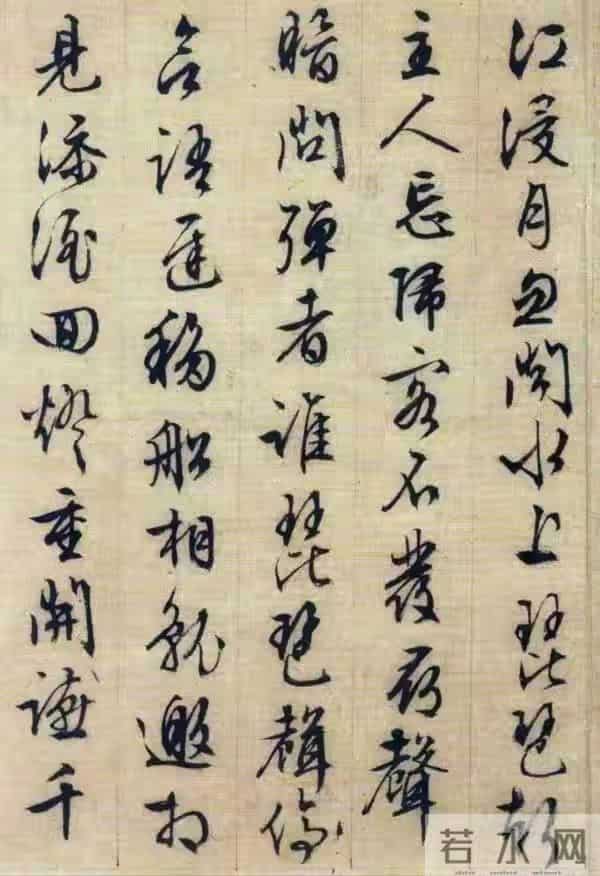 江浸月忽聞水上琵琶
主人忘歸客不發尋聲
暗問彈者誰琵琶聲停
欲語遲移船相就邀相
見添酒回燈重開讌千
若水网